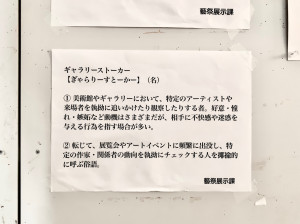 藝祭展示課
ギャラリーストーカー
【ぎゃらりーすとーかー】(名)
① 美術館やギャラリーにおいて、特定のアーティストや
来場者を執拗に追いかけたり観察したりする者。好意・憧
れ・嫉妬など動機はさまざまだが、相手に不快感や迷惑を
与える行為を指す場合が多い。
② 転じて、展覧会やアートイベントに頻繁に出没し、特
定の作家・関係者の動向を執拗にチェックする人を揶揄的
に呼ぶ俗語。
藝祭展示課